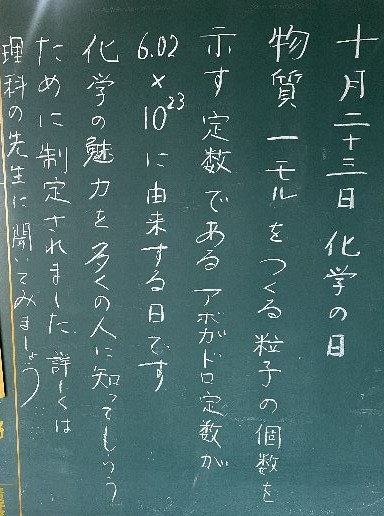 十月二十三日 化学の日
物質一モルをつくる粒子の個数を
示す定数であるアボガドロ定数が
6.02×10²³に由来する日です
化学の魅力を多くの人に知ってもらう
ために制定されました 詳しくは
理科の先生に聞いてみましょう